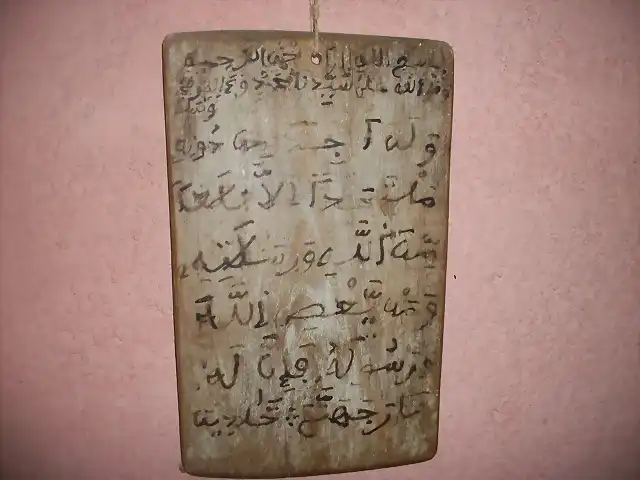 بسم الله الرحمن الرحيم
وصلى الله على سيدنا محمد
وسلم
ولن اجد من دونه
ملتحدا الا بلغا
من الله ورسلته
ومن يعص الله
ورسوله فإن له
نار جهنم خلدين